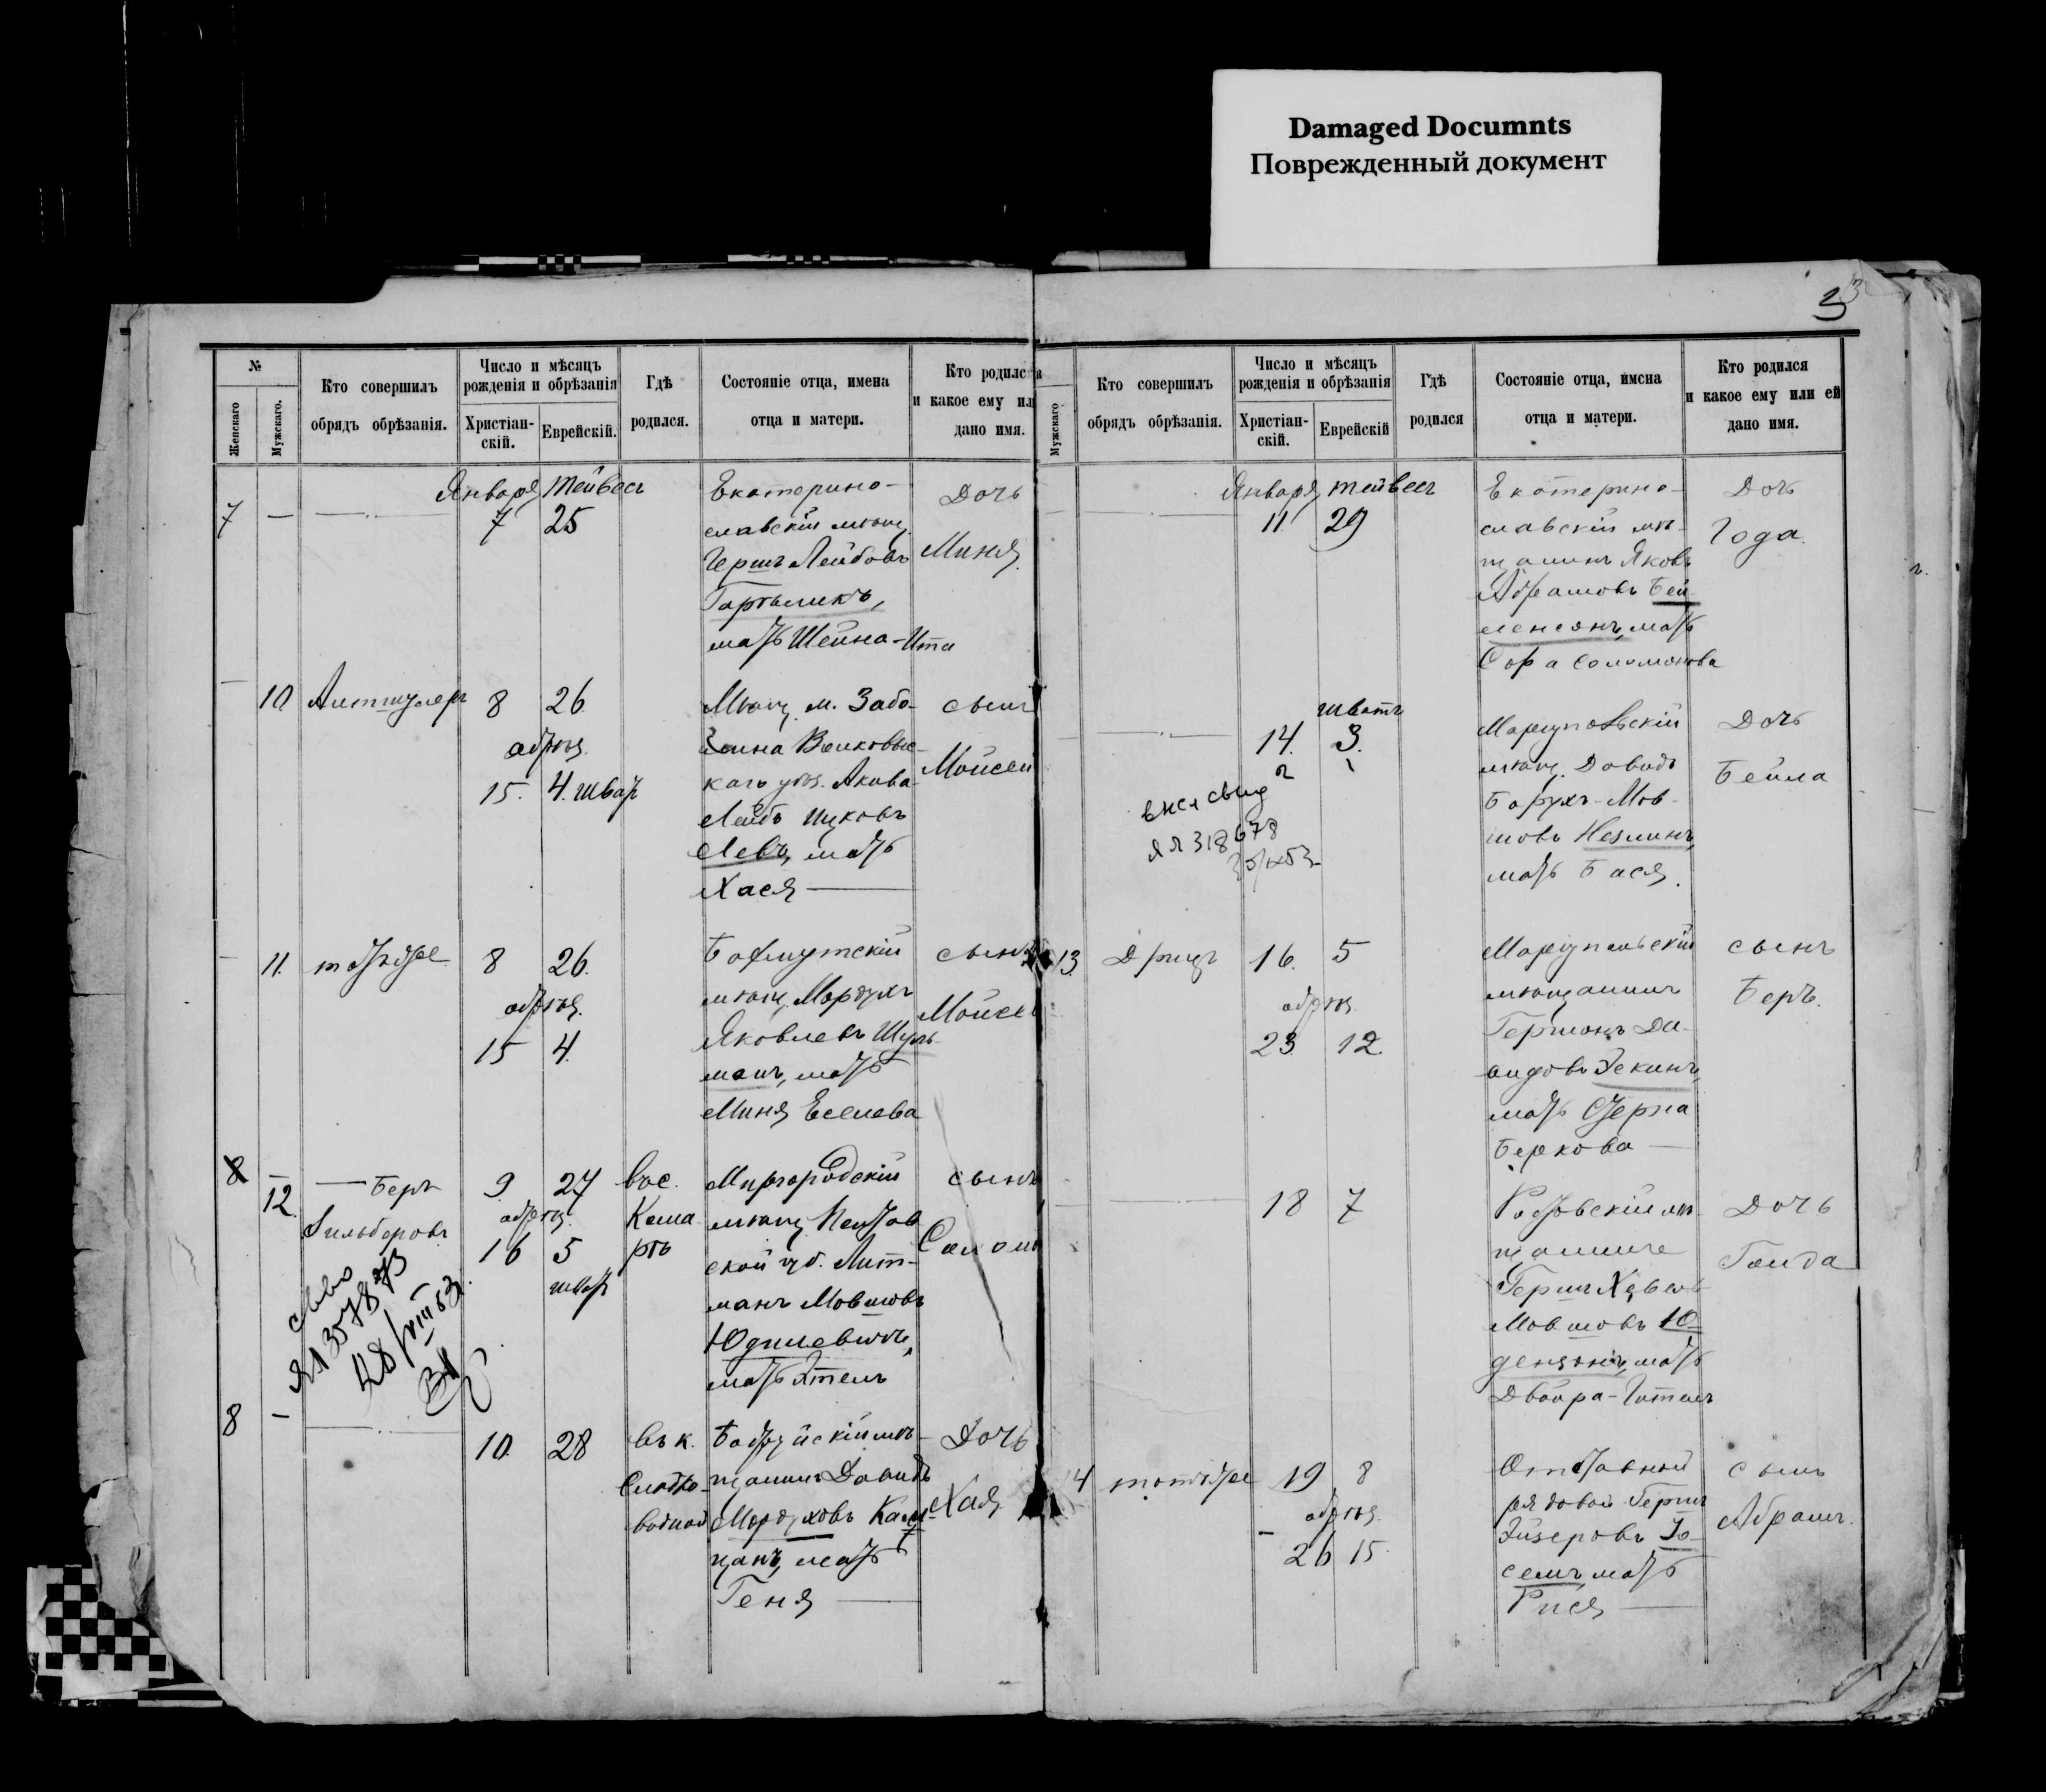 Damaged Documnts
Поврежденный документ
3
№
Женскаго
Мужскаго.
Кто совершилъ
обрядъ обрѣзанія.
Число и мѣсяцъ
рожденія и обрѣзанія
Христіан-
скій.
Еврейскій.
Гдѣ
родился.
Состояніе отца, имена
отца и матери.
Кто родился
и какое ему ил
дано имя.
7 —
Января Тейвесъ
7 25
Екатерино-
славскій мѣщ.
Гершъ Лейбовъ
мать Шейна-Ита
Дочь
Миня
— 10 Альтшулеръ
8 26
обрѣз.
15. 4. шват
Мѣщ. м. Забо-
Волковыс-
каго уѣз. Акива-
Лейбъ Ицковъ
Левъ, мать
Хася
сынъ
Мойсей
— 11. тотъ же
8 26.
обрѣз.
15 4.
Бахмутскій
мѣщ. Мордухъ
Яковлевъ Шуль-
манъ, мать
Миня Еселева
сынъ
Мойсей
8 —
12. Беръ
Зильберовъ
9 27
обрѣз.
16 5
шват
вос.
Кома
рѣ
Миргородскій
мѣщ. Полтав
ской губ. Лит-
манъ Мовшовъ
Юдилевичъ,
мать Этель
сынъ
Соломо
8 —
10. 28
въ к.
Сладко-
водной
Бобруйскій мѣ-
щанинъ Давидъ
Мордуховъ Кац-
манъ, мать
Геня
Дочь
Хая
Мужскаго
Кто совершилъ
обрядъ обрѣзанія.
Число и мѣсяцъ
рожденія и обрѣзанія
Христіан-
скій.
Еврейскій
Гдѣ
родился
Состояніе отца, имена
отца и матери.
Кто родился
и какое ему или ей
дано имя.
Января тейвесъ
11 29
Екатерино-
славскій мѣ-
щанинъ Яковъ
Абрамовъ Бей-
ленсонъ, мать
Сора Соломонова
Дочь
Года.
шватъ
14. 3.
Маріупольскій
мѣщ. Довидъ
Борухъ-Мов-
шовъ Незлинъ,
мать Бася.
Дочь
Бейла
13 Дрицъ
16. 5
обрѣз.
23. 12.
Маріупольскій
мѣщанинъ
Германъ Да-
видовъ Зекинъ,
мать Черна
Беркова
сынъ
Беръ.
18 7
Ростовскій мѣ-
щанинъ
Гершъ Хевель-
Мовшовъ Ю-
денсонъ, мать
Двойра-Гитель
Дочь
Голда
14 тотъ же
19 8
обрѣз.
26 15.
Отставной
рядовой Гершъ
Эйзеровъ Іо-
сель, мать
Рися
сынъ
Абрамъ.